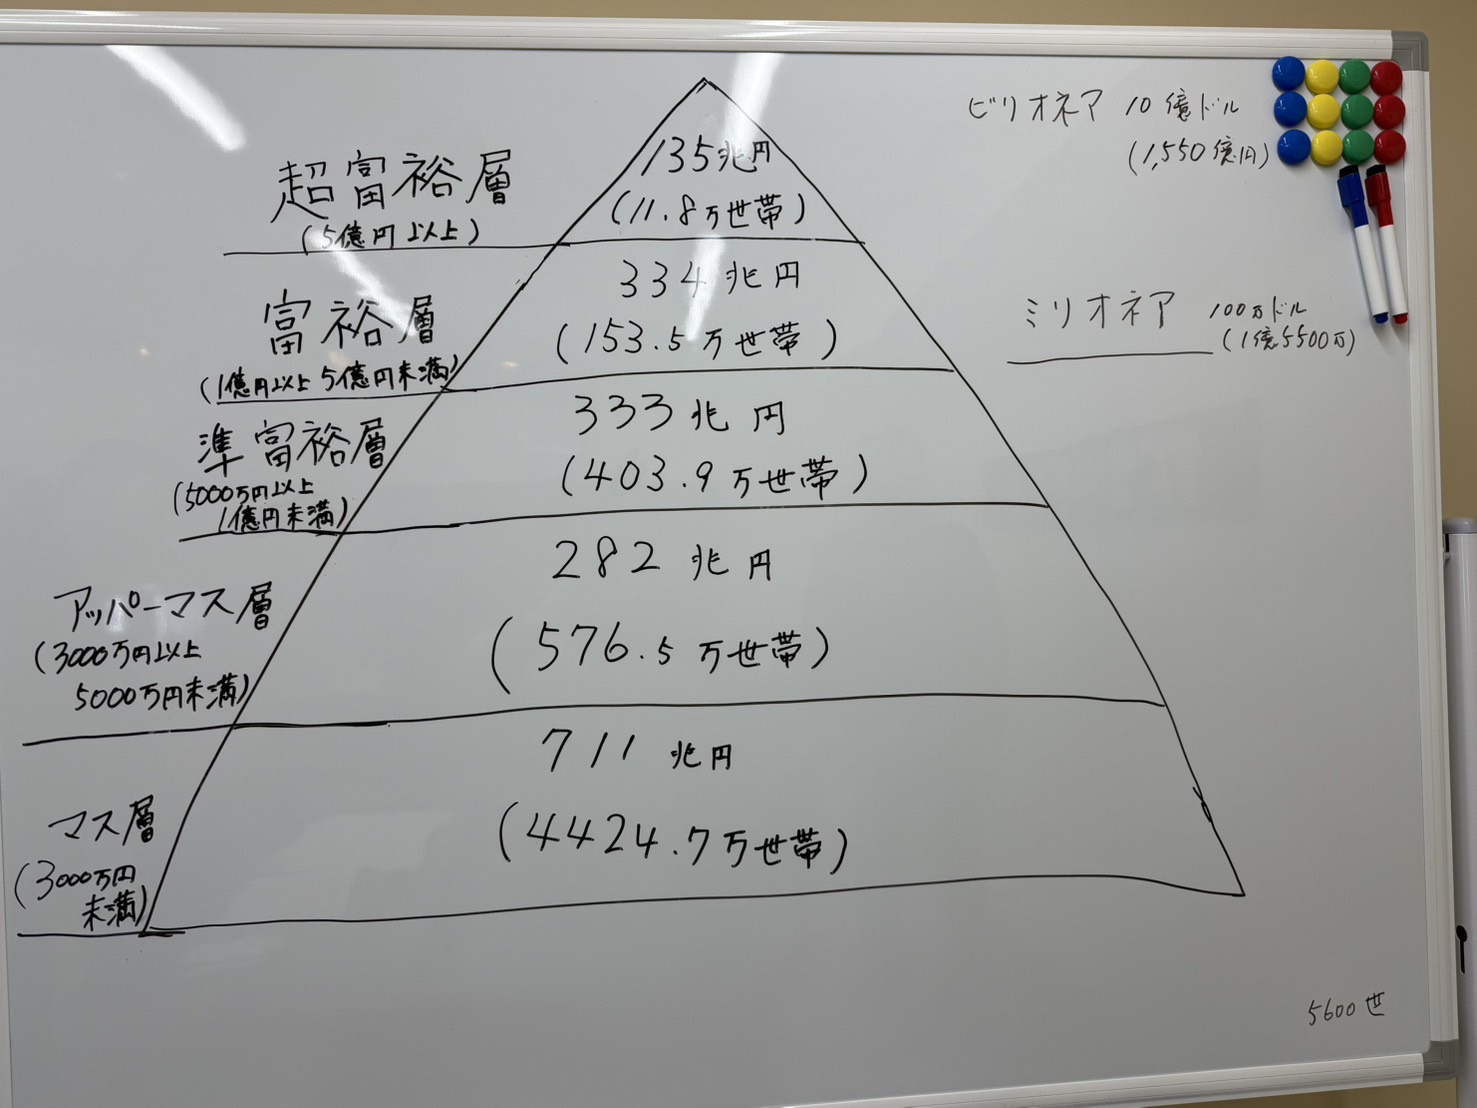 超富裕層
(5億円以上)
135兆円
(11.8万世帯)
富裕層
(1億円以上5億円未満)
334兆円
(153.5万世帯)
準富裕層
(5000万円以上
1億円未満)
333兆円
(403.9万世帯)
アッパーマス層
(3000万円以上
5000万円未満)
282兆円
(576.5万世帯)
マス層
(3000万円
未満)
711兆円
(4424.7万世帯)
ビリオネア 10億ドル
(1,550億円)
ミリオネア 100万ドル
(1億5500万)
5600世